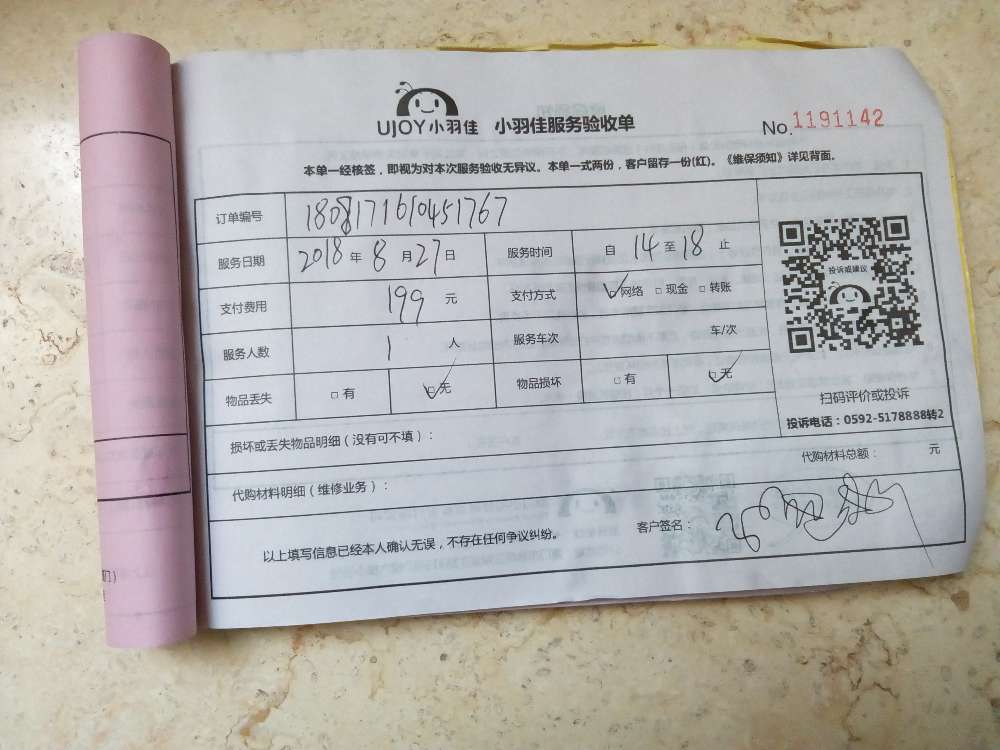 UJOY小羽佳 小羽佳服务验收单 No.1191142
本单一经核签，即视为对本次服务验收无异议。本单一式两份，客户留存一份(红)。《维保须知》详见背面。
订单编号 1808171610451767
服务日期 2018年8月27日 服务时间 自14至18止
支付费用 199元 支付方式 网络 现金 转账
服务人数 1人 服务车次 车/次
物品丢失 有 无 物品损坏 有 无
投诉或建议
扫码评价或投诉
投诉电话：0592-5178888转2
损坏或丢失物品明细（没有可不填）：
代购材料明细（维修业务）： 代购材料总额： 元
以上填写信息已经本人确认无误，不存在任何争议纠纷。 客户签名：